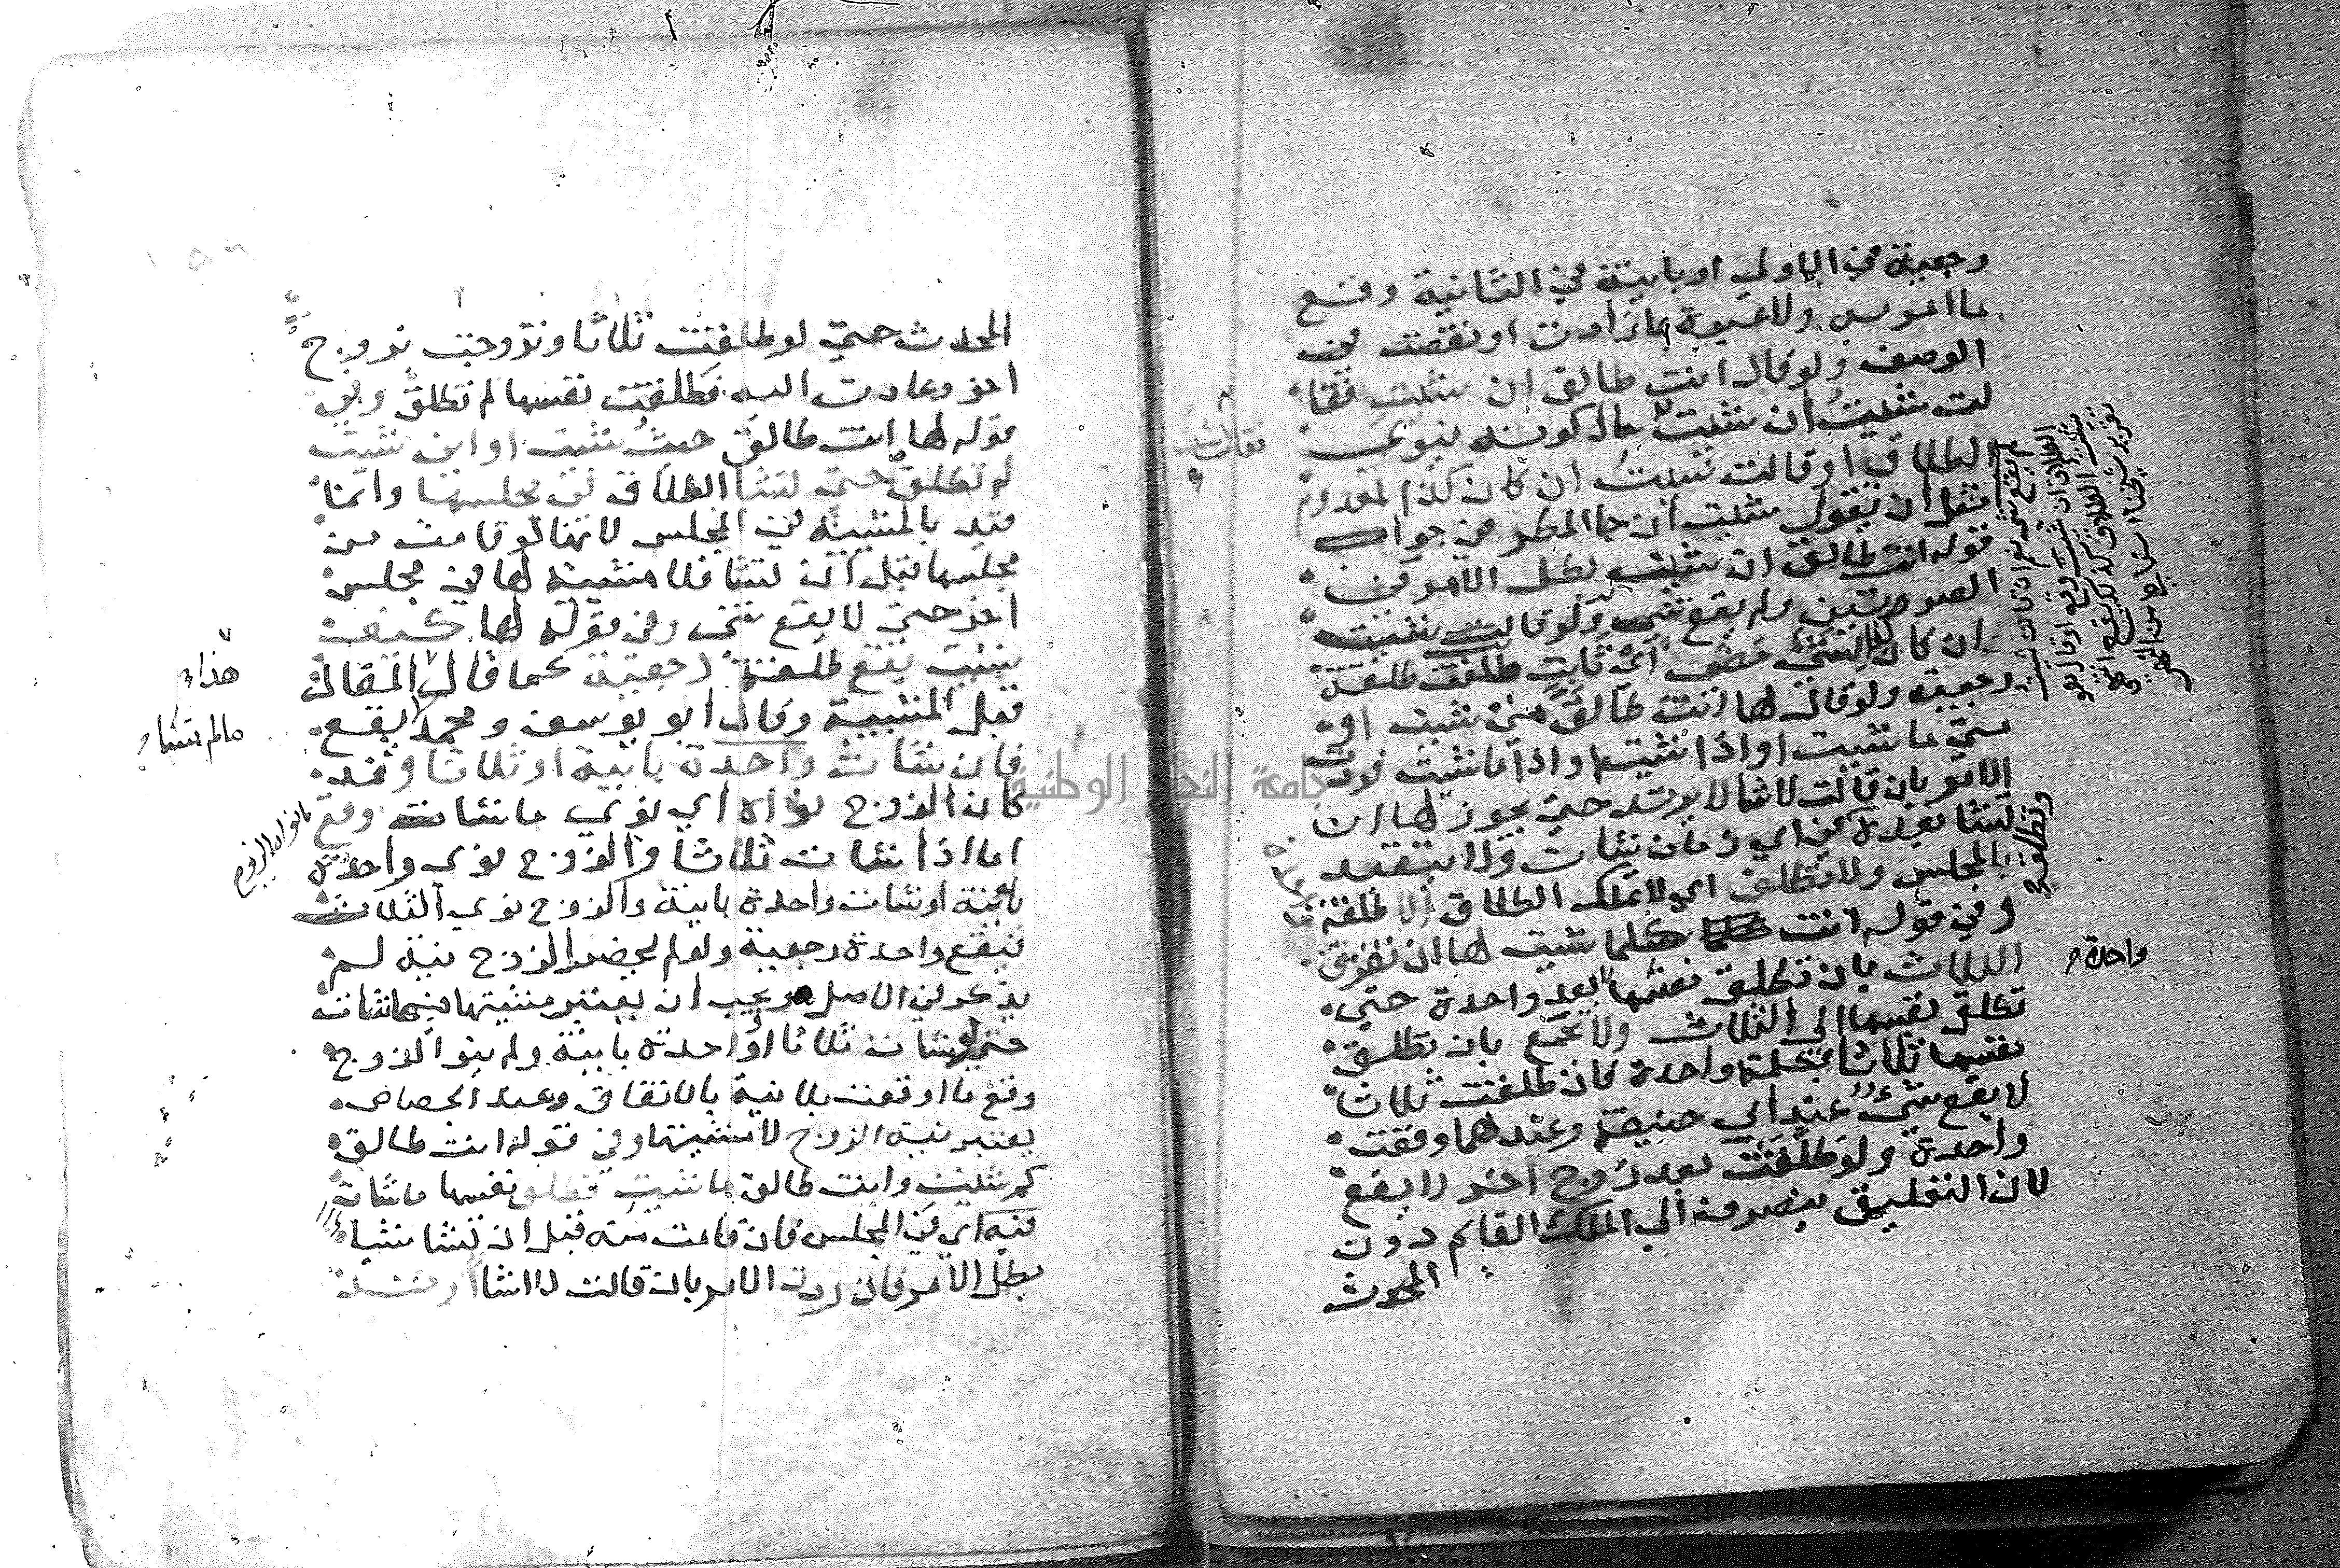 رجعية في الاولي او باينة في الثانية وقع
ما امر به ولا عبرة بما زادت او نقصت من
الوصف ولو قال انت طالق ان شئت فقا
لت شئت ان شئت حال كونه ينوي
الطلاق او قالت شئت ان كان كذا لمعدوم
مثل ان تقول شئت ان جا المطر في جواب
قوله انت طالق ان شئت بطل الامر في
الصورتين ولم يقع شي ولو قالت شئت
ان كان الشي مضي اي ثابت طلقت طلقة
رجعية ولو قال لها انت طالق متي شئت او
متي ما شئت او اذا شئت او اذا ما شئت فردت
الامر بان قالت لا اشا لا يرتد حتي يجوز لها ان
تشا بعده في اي زمان شات ولا يتقيد
بالمجلس ولا تطلق اي لا تملك الطلاق الا طلقة
وفي قوله انت كلما شيت لها ان تفرق
الثلاث بان تطلق نفسها بعد واحدة حتي
تطلق نفسها الي الثلاث ولا تجمع بان تطلق
نفسها ثلاثا بكلمة واحدة فان طلقت ثلاثا
لا يقع شي عند ابي حنيفة وعندهما وقعت
واحدة ولو طلقت بعد زوج اخر لا يقع
لان التعليق ينصرف الي الملك القايم دون
المحدث
فقالت شئت
واحدة
المحدث حتي لو طلقت ثلاثا وتزوجت بزوج
اخر وعادت اليه فطلقت نفسها لم تطلق وفي
قوله لها انت طالق حيث شئت او اين شئت
لم تطلق حتي تشا الطلاق في مجلسها وانما
قيد بالمشيية في المجلس لانها لو قامت من
مجلسها قبل ان تشا فلا مشية لها في مجلس
اخر حتي لا يقع شي وفي قوله لها كيف
شئت يقع طلقة رجعية كما قال المقال
قبل المشيية وقال ابو يوسف ومحمد لا يقع
فان شات واحدة باينة او ثلاثا وقد
كان الزوج نواه اي نوي ما شات وقع
اما اذا شات ثلاثا والزوج نوي واحدة
باينة او شات واحدة باينة والزوج نوي الثلاث
فيقع واحدة رجعية ولو لم يحضر الزوج نية لم
يذكر في الاصل ويجب ان يعتبر مشيتها فيما شات
حتي لو شات ثلاثا او واحدة باينة ولم ينو الزوج
وقع ما اوقعت بلا نية بالاتفاق وعند الخصاص
يعتبر نية الزوج لا مشيتها وفي قوله انت طالق
كم شئت وانت طالق ما شئت تطلق نفسها ما شات
فيه اي في المجلس فان قامت منه قبل ان تشا شيا
بطل الامر فان ردت الامر بان قالت لا اشا ارتد
هذا
مالم تشا
ما نواه الزوج
جامعة النجاح الوطنية